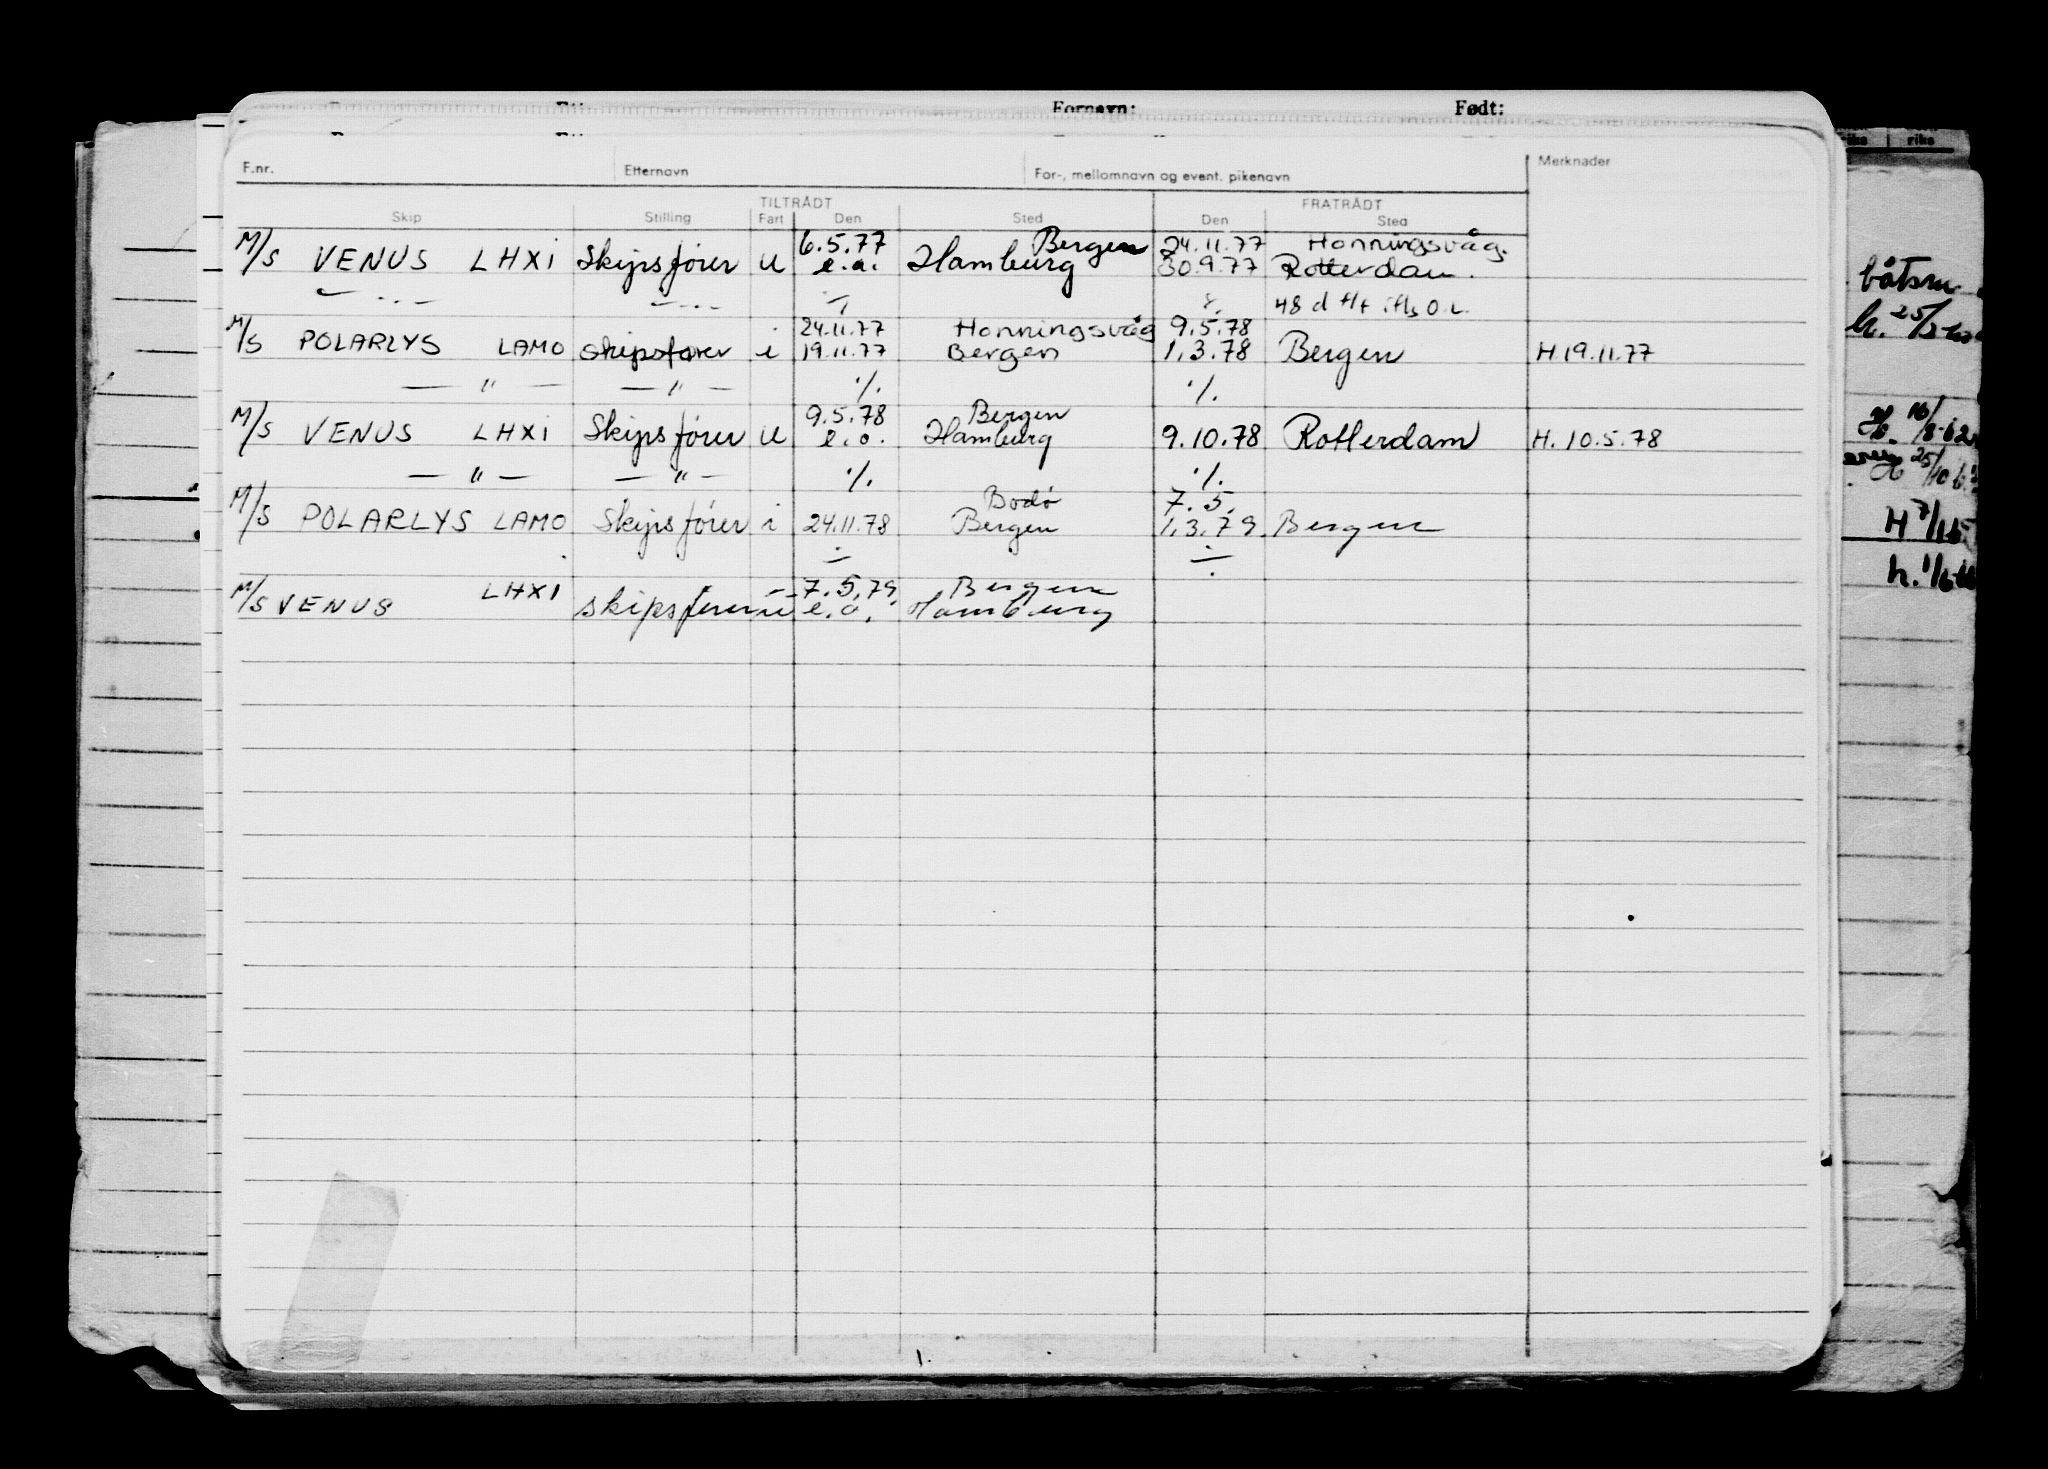 Fornavn: Født:
F.nr. Etternavn For-, mellomnavn og event. pikenavn Merknader
TILTRÅDT FRATRÅDT
Skip Stilling Fart Den Sted Den Sted
6.5.77 Bergen 24.11.77 Honningsvåg.
M/S VENUS LHXI Skipsfører u e.o. Hamburg 30.9.77 Rotterdam.
— " — — " — 48 d
24.11.77 Honningsvåg 9.5.78
M/S POLARLYS LAMO skipsfører i 19.11.77 Bergen 1.3.78 Bergen H.19.11.77
— " — — " — ./. ./.
9.5.78 Bergen
M/S VENUS LHXI Skipsfører u e.o. Hamburg 9.10.78 Rotterdam H. 10.5.78
— " — — " — ./. ./.
Bodø 7.5.
M/S POLARLYS LAMO Skipsfører i 24.11.78 Bergen 1.3.79. Bergen
7.5.79. Bergen
M/S VENUS LHXI skipsfører u e.o. Hamburg
riks
båtsm
H 7/1 65